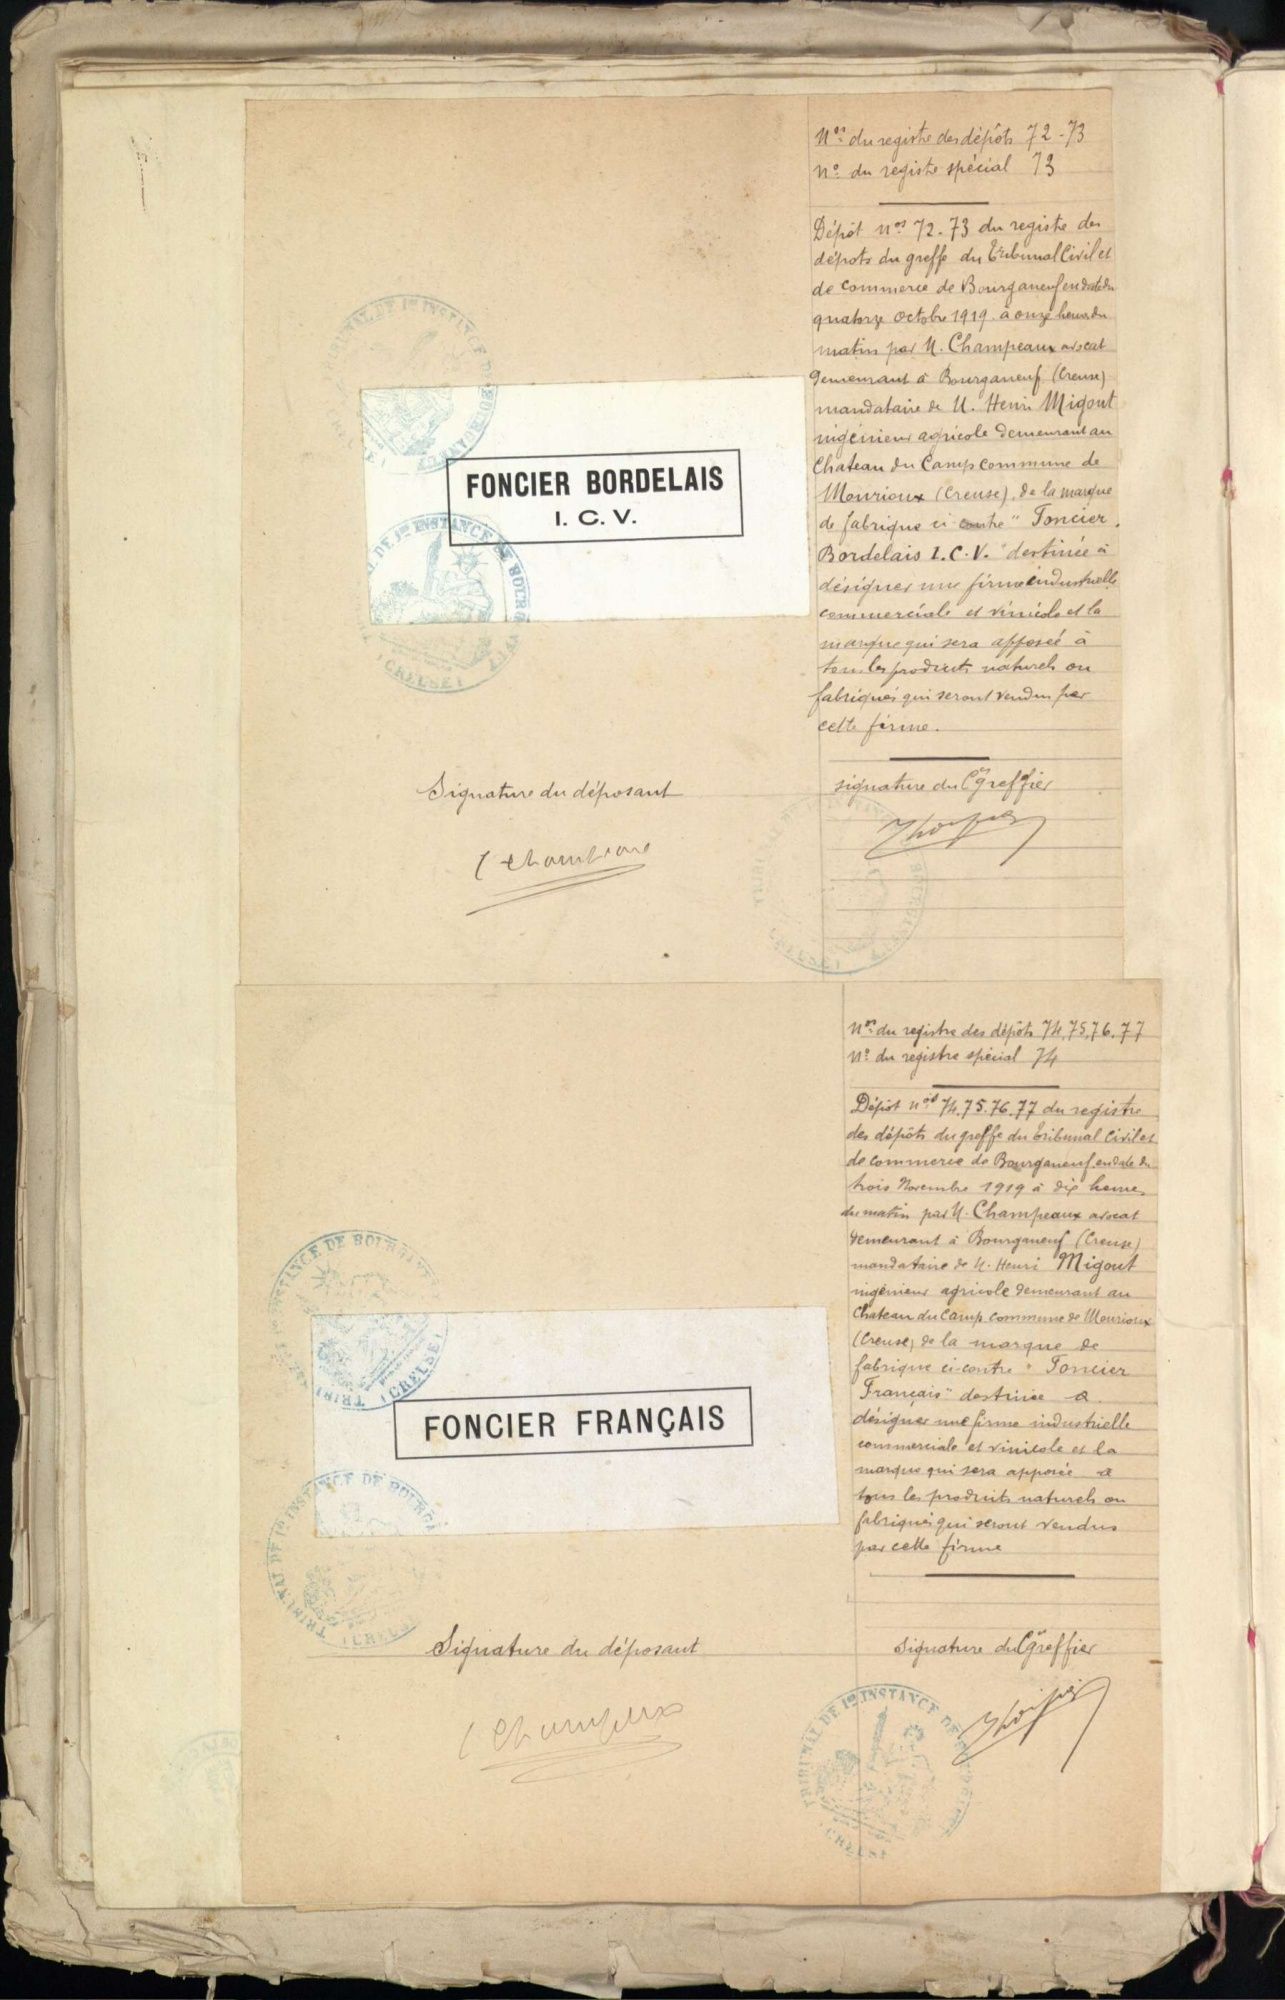 Nos du registre des dépôts 72-73
No du registre spécial 73
Dépôt nos 72-73 du registre des
dépôts du greffe du Tribunal Civil et
de commerce de Bourganeuf en date du
quatorze octobre 1919 à onze heures du
matin par M. Champeaux avocat
demeurant à Bourganeuf (Creuse)
mandataire de M. Henri Migout
ingénieur agricole demeurant au
Chateau du Camp commune de
Mourioux (Creuse), de la marque
de fabrique ci-contre "Foncier
Bordelais I.C.V." destinée à
désigner une firme industrielle
commerciale et vinicole et la
marque qui sera apposée à
tous les produits naturels ou
fabriqués qui seront vendus par
cette firme.
FONCIER BORDELAIS
I. C. V.
TRIBUNAL DE 1re INSTANCE DE BOURGANEUF
(CREUSE)
Signature du déposant
Champeaux
signature du Cis Greffier
Nos du registre des dépôts 74,75,76,77
No du registre spécial 74
Dépôt nos 74.75.76.77 du registre
des dépôts du greffe du Tribunal Civil et
de commerce de Bourganeuf en date du
trois Novembre 1919 à dix heures
du matin par M. Champeaux avocat
demeurant à Bourganeuf (Creuse)
mandataire de M. Henri Migout
ingénieur agricole demeurant au
Chateau du Camp commune de Mourioux
(Creuse) de la marque de
fabrique ci-contre "Foncier
Français" destinée à
désigner une firme industrielle
commerciale et vinicole et la
marque qui sera apposée à
tous les produits naturels ou
fabriqués qui seront vendus
par cette firme
FONCIER FRANÇAIS
TRIBUNAL DE 1re INSTANCE DE BOURGANEUF
(CREUSE)
Signature du déposant
Champeaux
Signature du Greffier
TRIBUNAL DE 1re INSTANCE DE